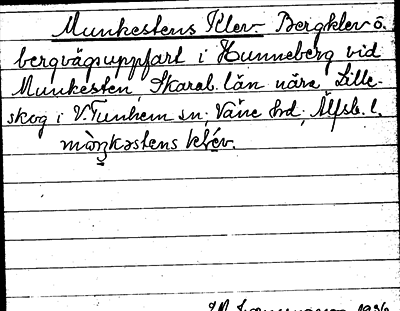 Munkestens Klev Bergklev o.
bergvägsuppfart i Hunneberg vid
Munkesten, Skarab. län nära Lille-
skog i V. Tunhem sn; Väne hrd; Älfsb. l.
1936